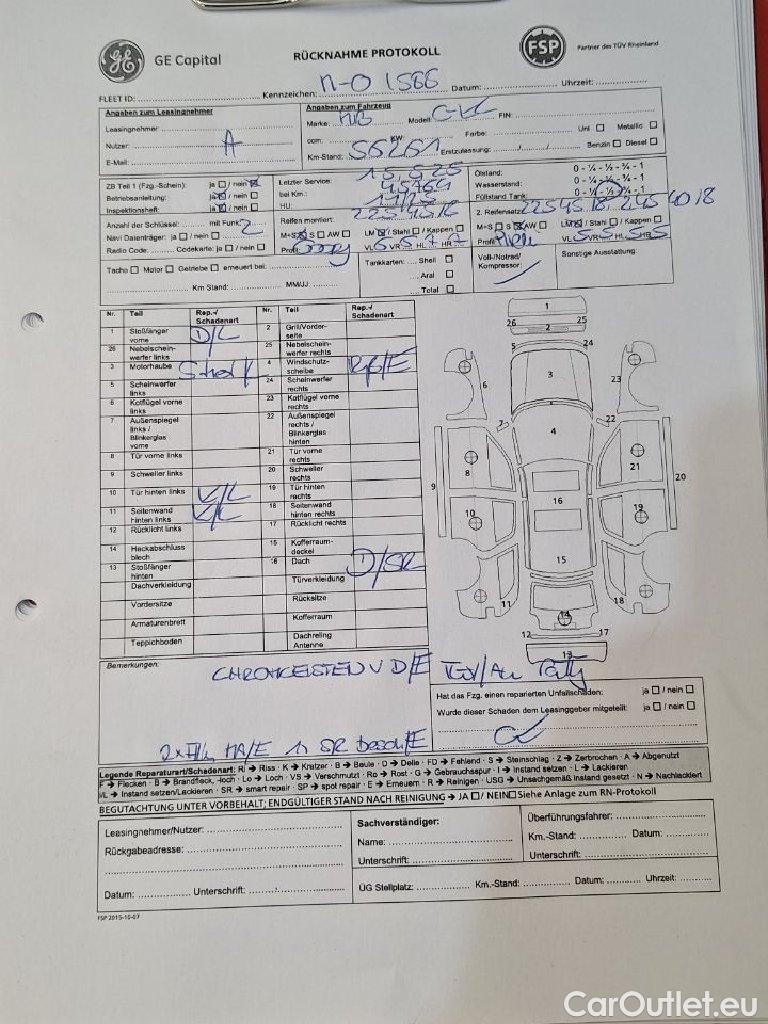 GE Capital
RÜCKNAHME PROTOKOLL
FSP Partner des TÜV Rheinland
FLEET ID: Kennzeichen: Datum: Uhrzeit:
Angaben zum Leasingnehmer
Leasingnehmer:
Nutzer: A
E-Mail:
Angaben zum Fahrzeug
Marke: MB Modell: FIN:
ccm: KW: Farbe: Uni Metallic
Km-Stand: 55251 Erstzulassung: Benzin Diesel
ZB Teil 1 (Fzg.-Schein): ja / nein
Betriebsanleitung: ja / nein
Inspektionsheft: ja / nein
Letzter Service: 15.5.25
bei Km.: 45769
HU: 11/25
Ölstand: 0 - ¼ - ½ - ¾ - 1
Wasserstand: 0 - ¼ - ½ - ¾ - 1
Füllstand Tank: 0 - ¼ - ½ - ¾ - 1
Anzahl der Schlüssel: mit Funk: 2
Navi Datenträger: ja / nein
Radio Code: Codekarte: ja / nein
Reifen montiert: 225 45 18
M+S S AW LM / Stahl / Kappen
Profil: VL 5 VR 5 HL 7 HR 7
2. Reifensatz: 225 45 18, 245 40 18
M+S S AW LM / Stahl / Kappen
Profil VL 5 VR 5 HL 5 HR 5
Tacho Motor Getriebe erneuert bei:
Km Stand: MM/JJ:
Tankkarten: Shell
Aral
Total
Voll-/Notrad/
Kompressor:
Sonstige Ausstattung:
Nr. Teil Rep.-/ Schadenart Nr. Teil Rep.-/ Schadenart
1 Stoßfänger vorne D/L 2 Grill/Vorderseite
26 Nebelscheinwerfer links 25 Nebelscheinwerfer rechts
3 Motorhaube 4 Windschutzscheibe
5 Scheinwerfer links 24 Scheinwerfer rechts
6 Kotflügel vorne links 23 Kotflügel vorne rechts
7 Außenspiegel links / Blinkerglas vorne 22 Außenspiegel rechts / Blinkerglas hinten
8 Tür vorne links 21 Tür vorne rechts
9 Schweller links 20 Schweller rechts
10 Tür hinten links 19 Tür hinten rechts
11 Seitenwand hinten links 18 Seitenwand hinten rechts
12 Rücklicht links 17 Rücklicht rechts
14 Heckabschlussblech 15 Kofferraumdeckel
13 Stoßfänger hinten 16 Dach D/SR
Dachverkleidung Türverkleidung
Vordersitze Rücksitze
Armaturenbrett Kofferraum
Teppichboden Dachreling Antenne
1
26 2 25
5 24
6 3 23
7 22
4
8 21
9 20
10 16 19
15
11 18
14
12 17
13
Bemerkungen: CHROMLEISTEN V D/E
Hat das Fzg. einen reparierten Unfallschaden: ja / nein
Wurde dieser Schaden dem Leasinggeber mitgeteilt: ja / nein
Legende Reparaturart/Schadenart: Ri → Riss · K → Kratzer · B → Beule · D → Delle · FD → Fehlend · S → Steinschlag · Z → Zerbrochen · A → Abgenutzt
F → Flecken · B → Brandfleck, -loch · Lo → Loch · VS → Verschmutzt · Ro → Rost · G → Gebrauchsspur · I → Instand setzen · L → Lackieren
I/L → Instand setzen/Lackieren · SR → smart repair · SP → spot repair · E → Erneuern · R → Reinigen · USG → Unsachgemäß instand gesetzt · N → Nachlackiert
BEGUTACHTUNG UNTER VORBEHALT; ENDGÜLTIGER STAND NACH REINIGUNG → JA / NEIN Siehe Anlage zum RN-Protokoll
Leasingnehmer/Nutzer:
Rückgabeadresse:
Datum: Unterschrift:
Sachverständiger:
Name:
Unterschrift:
Überführungsfahrer:
Km.-Stand: Datum:
Unterschrift:
ÜG Stellplatz: Km.-Stand: Datum: Uhrzeit:
FSP 2015-10-07
CarOutlet.eu